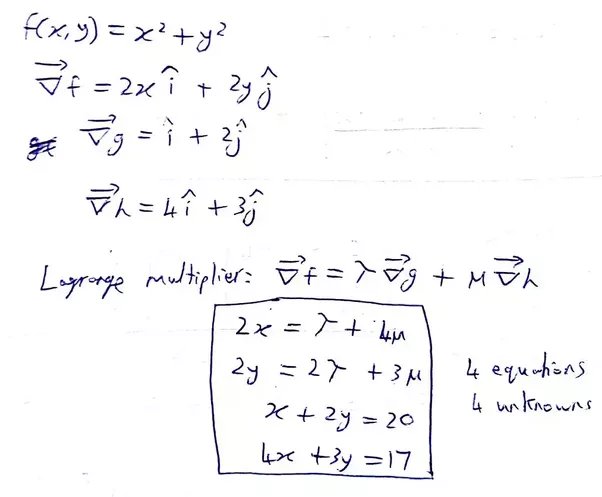 f(x,y) = x² + y²
∇⃗f = 2x î + 2y ĵ
∇⃗g = î + 2ĵ
∇⃗h = 4î + 3ĵ
Lagrange multiplier: ∇⃗f = λ∇⃗g + μ∇⃗h
2x = λ + 4μ
2y = 2λ + 3μ
x + 2y = 20
4x + 3y = 17
4 equations
4 unknowns